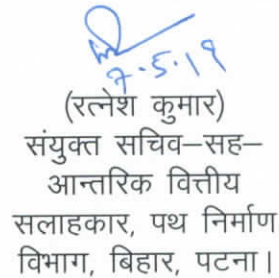 7.5.19
(रत्नेश कुमार)
संयुक्त सचिव–सह–
आन्तरिक वित्तीय
सलाहकार, पथ निर्माण
विभाग, बिहार, पटना।